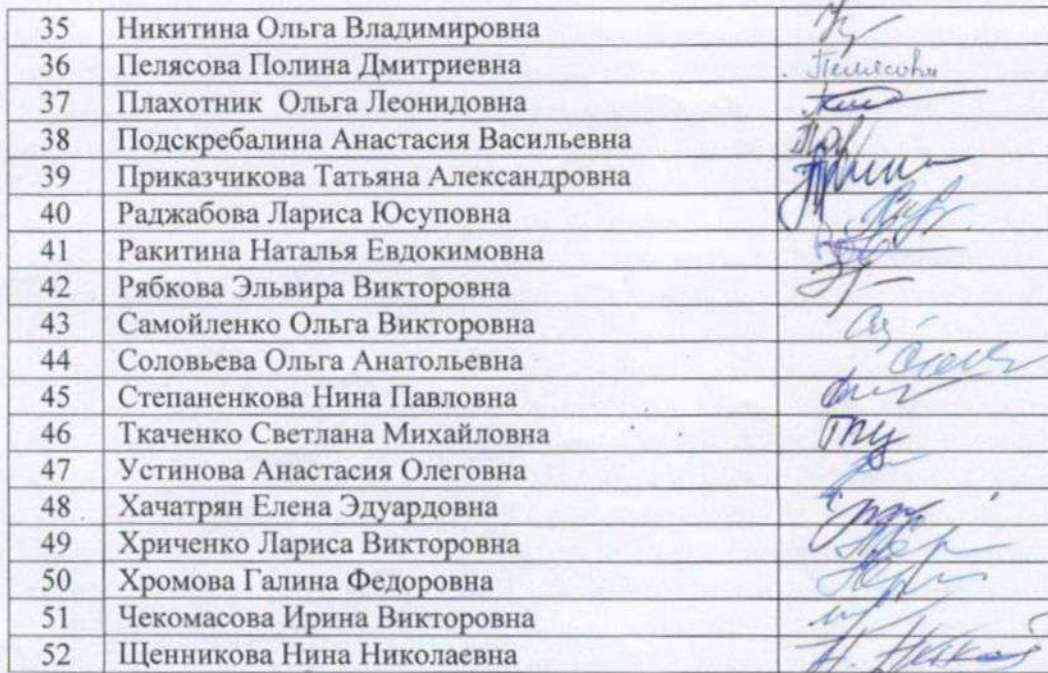 35 Никитина Ольга Владимировна
36 Пелясова Полина Дмитриевна Пелясова
37 Плахотник Ольга Леонидовна
38 Подскребалина Анастасия Васильевна
39 Приказчикова Татьяна Александровна
40 Раджабова Лариса Юсуповна
41 Ракитина Наталья Евдокимовна
42 Рябкова Эльвира Викторовна
43 Самойленко Ольга Викторовна
44 Соловьева Ольга Анатольевна
45 Степаненкова Нина Павловна
46 Ткаченко Светлана Михайловна
47 Устинова Анастасия Олеговна
48 Хачатрян Елена Эдуардовна
49 Хриченко Лариса Викторовна
50 Хромова Галина Федоровна
51 Чекомасова Ирина Викторовна
52 Щенникова Нина Николаевна